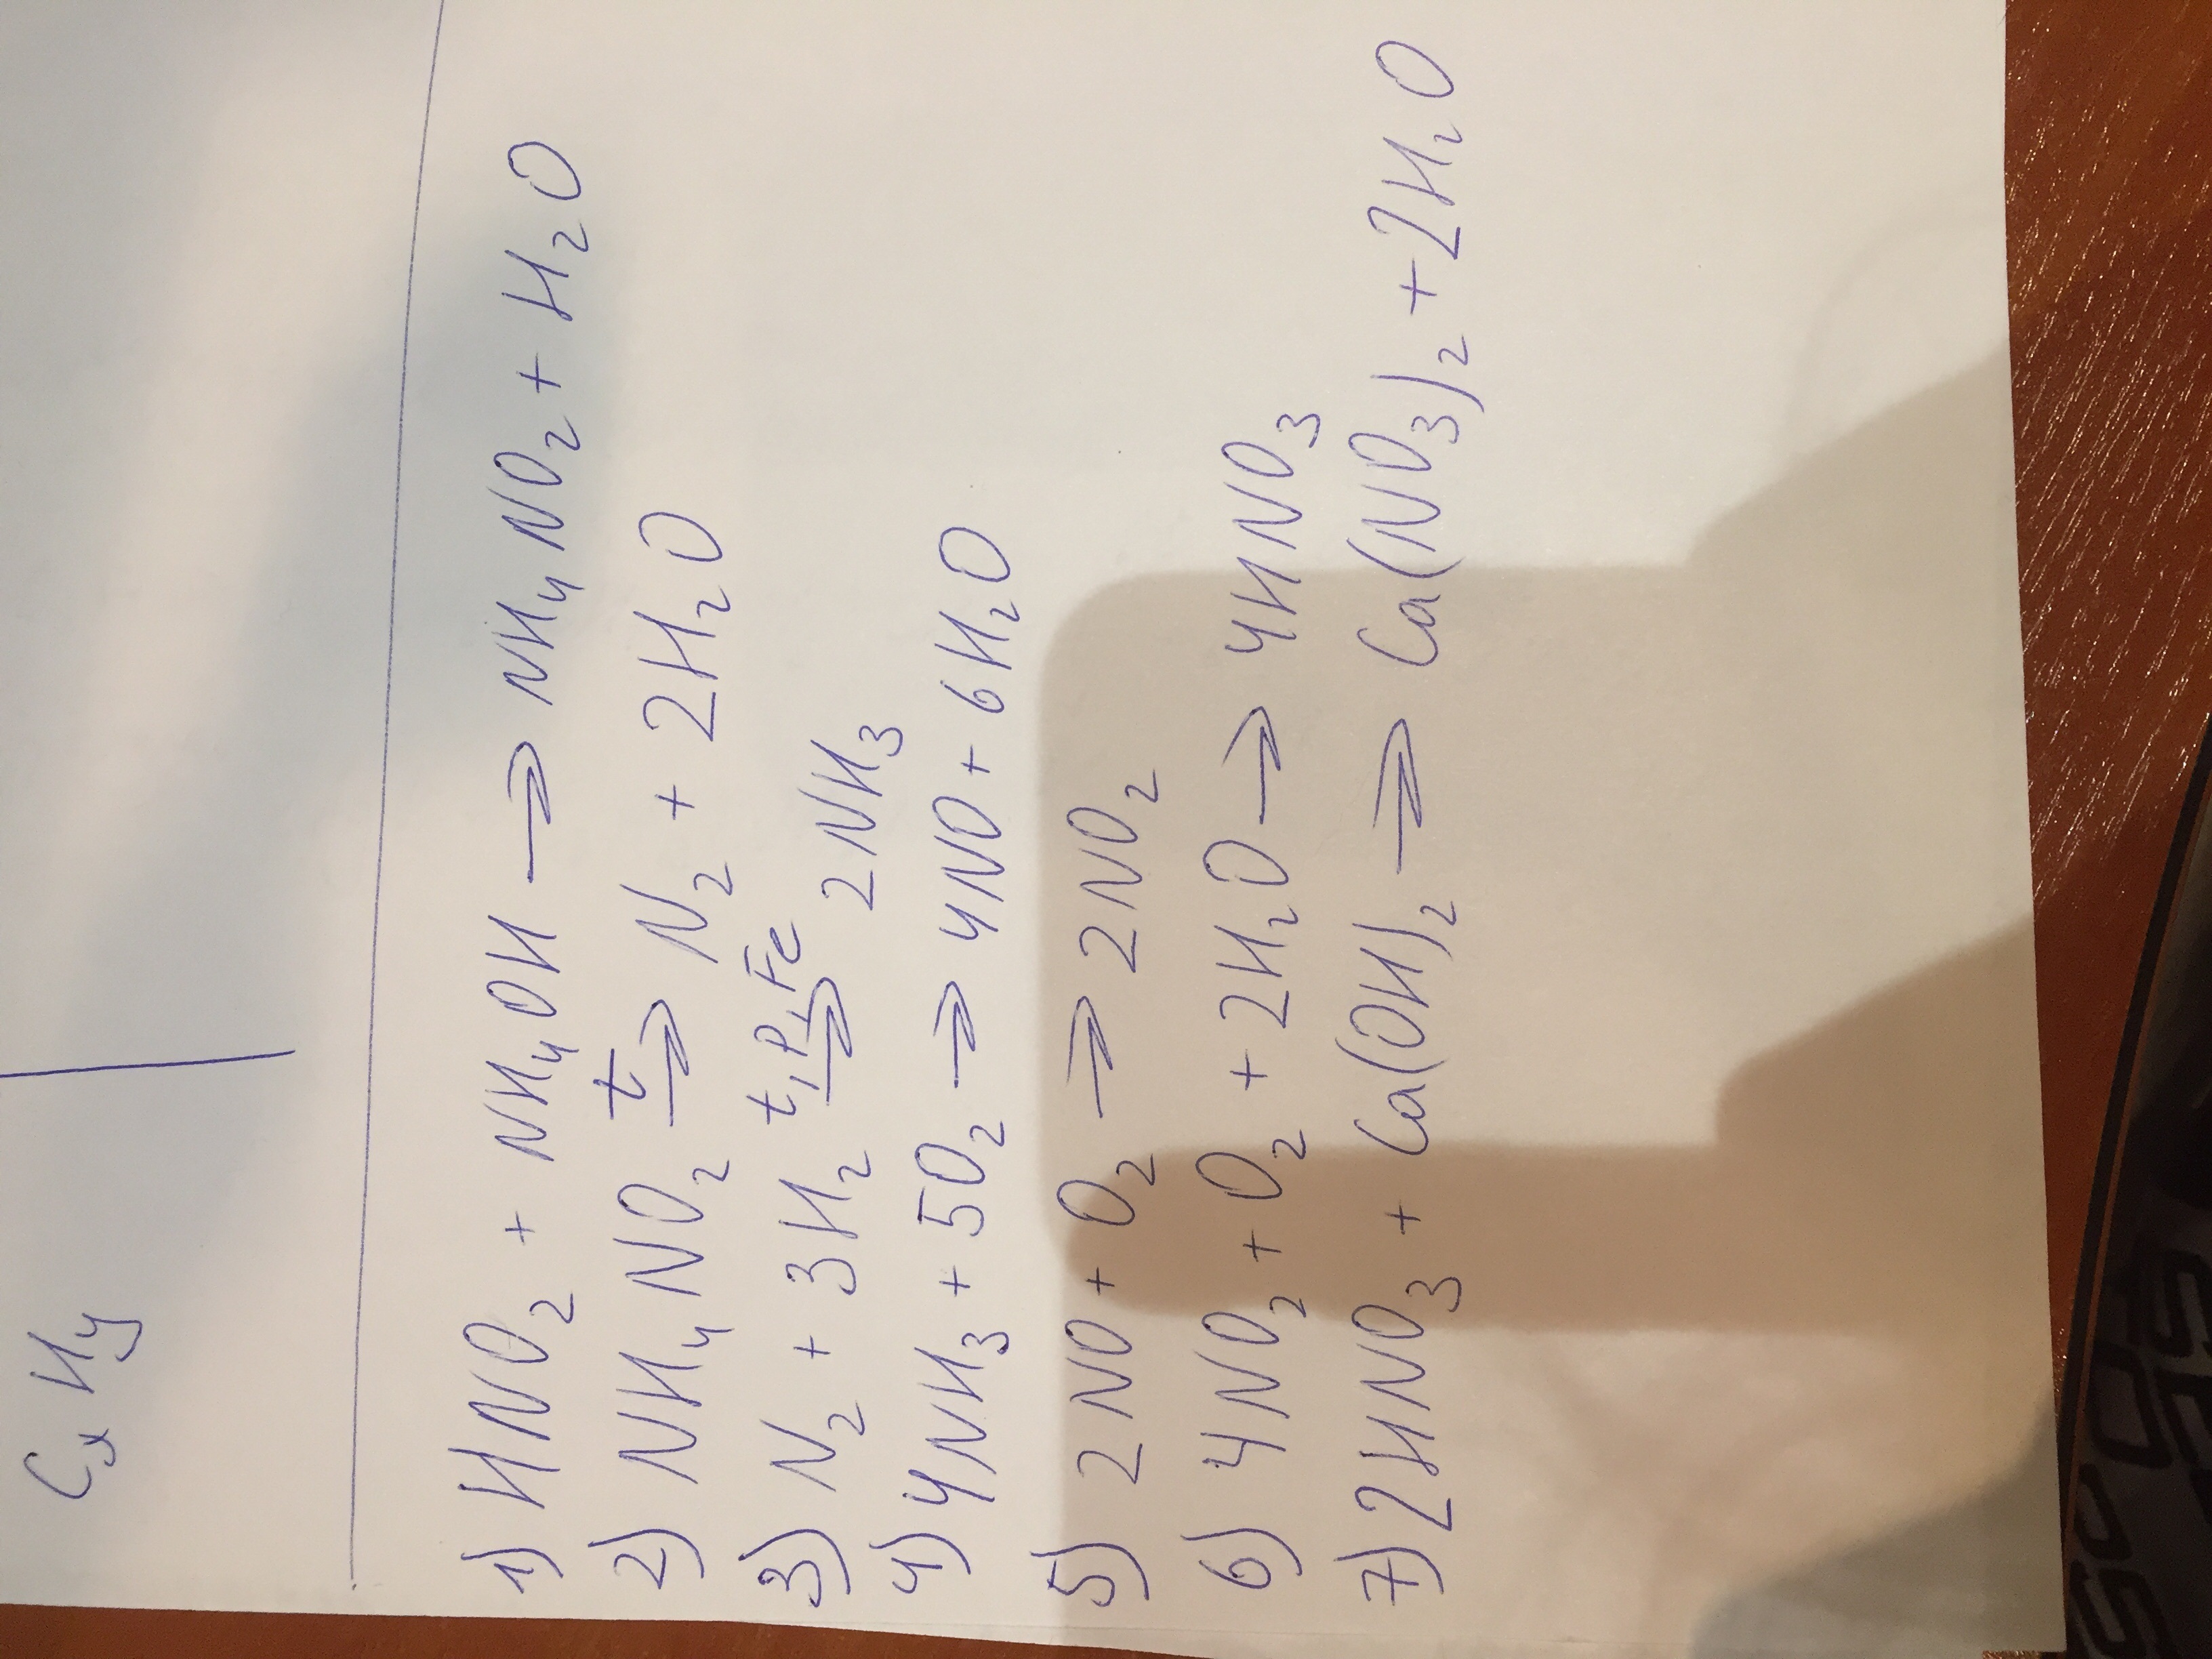 CxHy
1) HNO2 + NH4OH → NH4NO2 + H2O
2) NH4NO2 t→ N2 + 2H2O
3) N2 + 3H2 t, P, Fe→ 2NH3
4) 4NH3 + 5O2 → 4NO + 6H2O
5) 2NO + O2 → 2NO2
6) 4NO2 + O2 + 2H2O → 4HNO3
7) 2HNO3 + Ca(OH)2 → Ca(NO3)2 + 2H2O